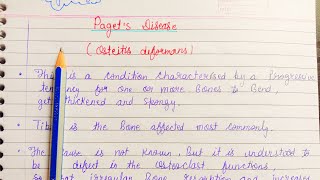 Paget's Disease
(Osteitis deformans)
• This is a condition characterised by a Progressive
tendency for one or more Bones to Bend,
get thickened and Spongy.
• Tibia is the Bone affected most commonly.
• The cause is not known, But it is understood to
be a defect in the Osteoclast functions,
so that irregular Bone Resorption and increased